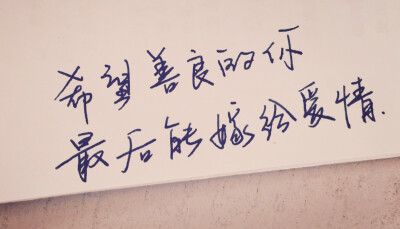 希望善良的你
最后能嫁给爱情.